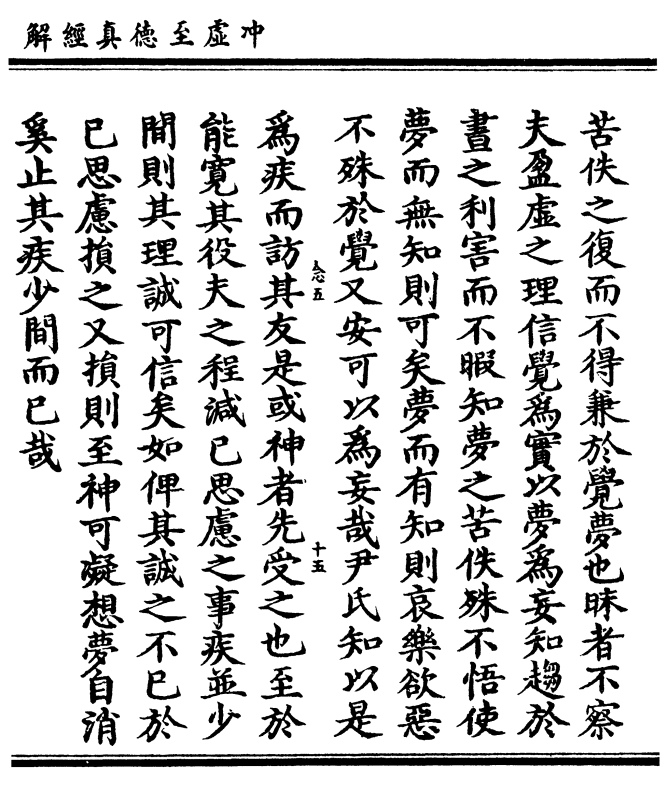 冲虛至德真經解
苦佚之復而不得兼於覺夢也昧者不察
夫盈虛之理信覺爲實以夢爲妄知趨於
晝之利害而不暇知夢之苦佚殊不悟使
夢而無知則可矣夢而有知則哀樂欲惡
不殊於覺又安可以爲妄哉尹氏知以是
忩五
十五
爲疾而訪其友是或神者先受之也至於
能寬其役夫之程減已思慮之事疾並少
間則其理誠可信矣如俾其誠之不已於
已思慮損之又損則至神可凝想夢自消
奚止其疾少間而已哉